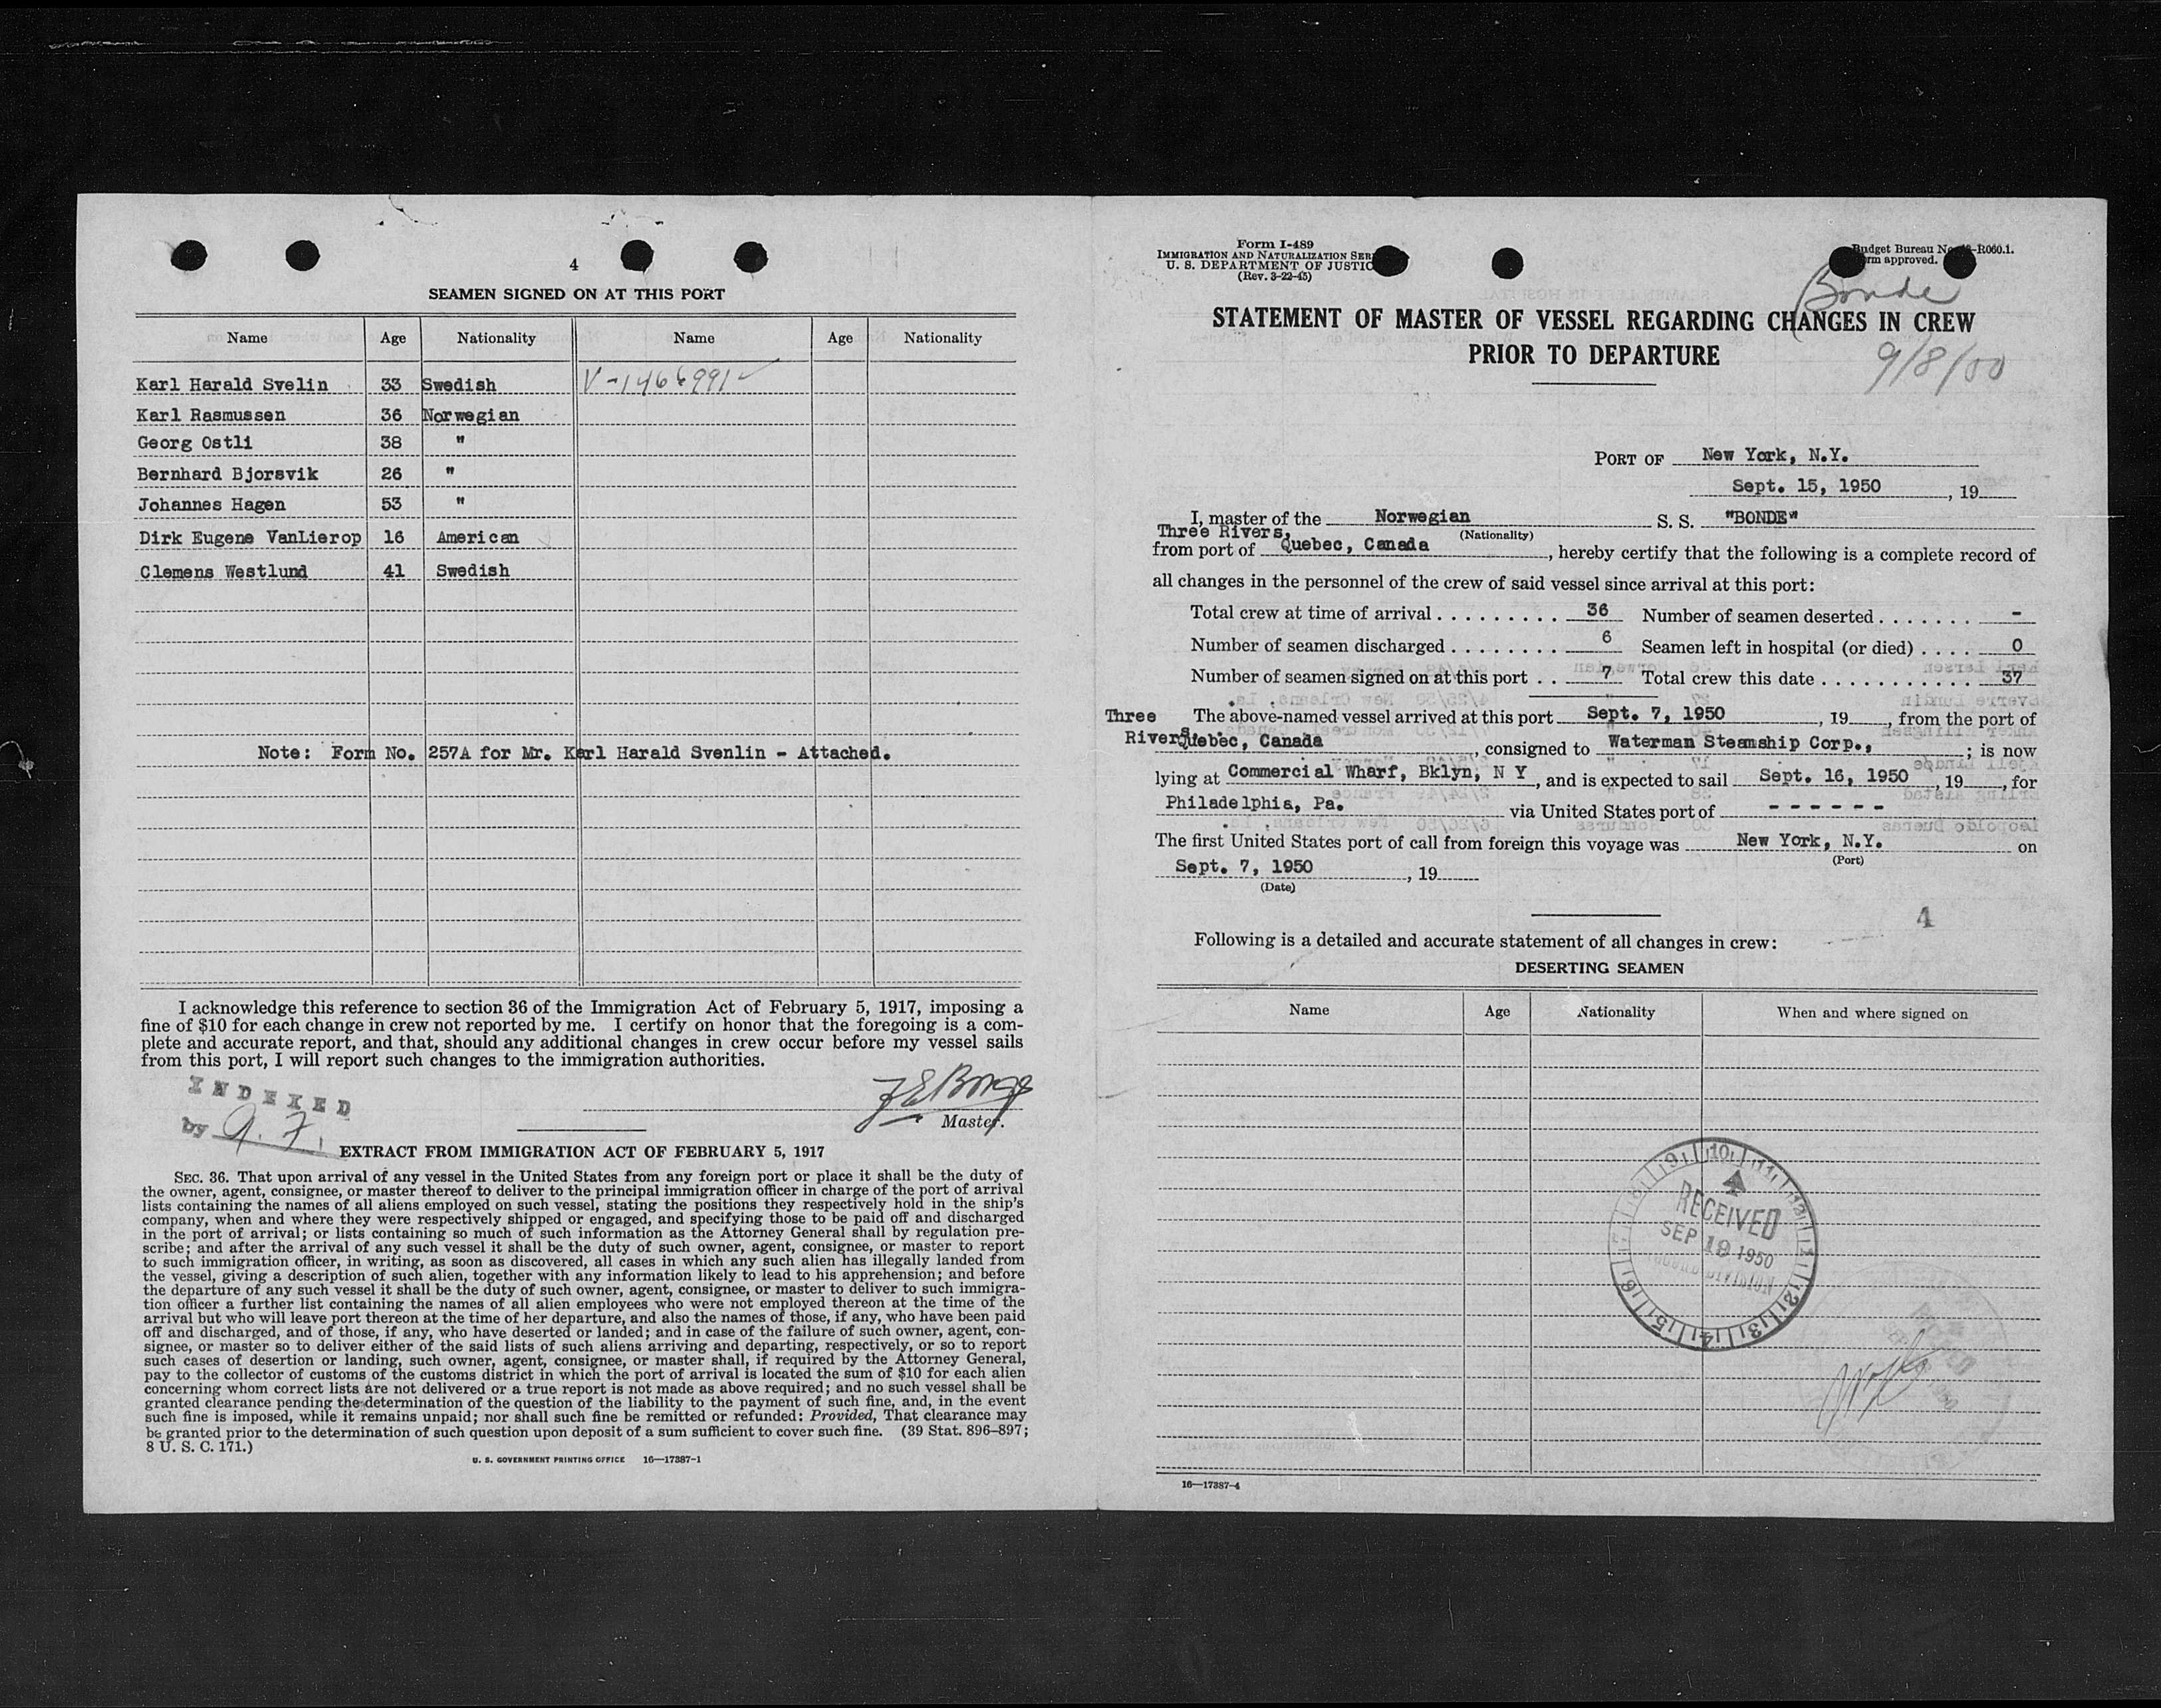 4
SEAMEN SIGNED ON AT THIS PORT
Name Age Nationality Name Age Nationality
Karl Harald Svelin 33 Swedish
Karl Rasmussen 36 Norwegian
Georg Ostli 38 "
Bernhard Bjorsvik 26 "
Johannes Hagen 53 "
Dirk Eugene VanLierop 16 American
Clemens Westlund 41 Swedish
Note: Form No. 257A for Mr. Karl Harald Svenlin - Attached.
I acknowledge this reference to section 36 of the Immigration Act of February 5, 1917, imposing a
fine of $10 for each change in crew not reported by me. I certify on honor that the foregoing is a com-
plete and accurate report, and that, should any additional changes in crew occur before my vessel sails
from this port, I will report such changes to the immigration authorities.
INDEXED
by
Master.
EXTRACT FROM IMMIGRATION ACT OF FEBRUARY 5, 1917
SEC. 36. That upon arrival of any vessel in the United States from any foreign port or place it shall be the duty of
the owner, agent, consignee, or master thereof to deliver to the principal immigration officer in charge of the port of arrival
lists containing the names of all aliens employed on such vessel, stating the positions they respectively hold in the ship's
company, when and where they were respectively shipped or engaged, and specifying those to be paid off and discharged
in the port of arrival; or lists containing so much of such information as the Attorney General shall by regulation pre-
scribe; and after the arrival of any such vessel it shall be the duty of such owner, agent, consignee, or master to report
to such immigration officer, in writing, as soon as discovered, all cases in which any such alien has illegally landed from
the vessel, giving a description of such alien, together with any information likely to lead to his apprehension; and before
the departure of any such vessel it shall be the duty of such owner, agent, consignee, or master to deliver to such immigra-
tion officer a further list containing the names of all alien employees who were not employed thereon at the time of the
arrival but who will leave port thereon at the time of her departure, and also the names of those, if any, who have been paid
off and discharged, and of those, if any, who have deserted or landed; and in case of the failure of such owner, agent, con-
signee, or master so to deliver either of the said lists of such aliens arriving and departing, respectively, or so to report
such cases of desertion or landing, such owner, agent, consignee, or master shall, if required by the Attorney General,
pay to the collector of customs of the customs district in which the port of arrival is located the sum of $10 for each alien
concerning whom correct lists are not delivered or a true report is not made as above required; and no such vessel shall be
granted clearance pending the determination of the question of the liability to the payment of such fine, and, in the event
such fine is imposed, while it remains unpaid; nor shall such fine be remitted or refunded: Provided, That clearance may
be granted prior to the determination of such question upon deposit of a sum sufficient to cover such fine. (39 Stat. 896–897;
8 U. S. C. 171.)
U. S. GOVERNMENT PRINTING OFFICE 16—17387-1
Form I-489
IMMIGRATION AND NATURALIZATION SER
U. S. DEPARTMENT OF JUSTIC
(Rev. 3-22-45)
Budget Bureau No. -R060.1.
rm approved.
Bonde
STATEMENT OF MASTER OF VESSEL REGARDING CHANGES IN CREW
PRIOR TO DEPARTURE
PORT OF New York, N.Y.
Sept. 15, 1950, 19
I, master of the Norwegian S. S. "BONDE"
(Nationality)
Three Rivers,
from port of Quebec, Canada, hereby certify that the following is a complete record of
all changes in the personnel of the crew of said vessel since arrival at this port:
Total crew at time of arrival . . . . . . . . . 36 Number of seamen deserted . . . . . . . -
Number of seamen discharged . . . . . . . . 6 Seamen left in hospital (or died) . . . . 0
Number of seamen signed on at this port . . 7 Total crew this date . . . . . . . . . . . 37
The above-named vessel arrived at this port Sept. 7, 1950, 19, from the port of
Three Rivers, Quebec, Canada, consigned to Waterman Steamship Corp., ; is now
lying at Commercial Wharf, Bklyn, N Y, and is expected to sail Sept. 16, 1950, 19, for
Philadelphia, Pa. via United States port of - - - - - -
The first United States port of call from foreign this voyage was New York, N.Y. on
(Port)
Sept. 7, 1950, 19
(Date)
4
Following is a detailed and accurate statement of all changes in crew:
DESERTING SEAMEN
Name Age Nationality When and where signed on
RECEIVED
SEP 19 1950
16—17387-4